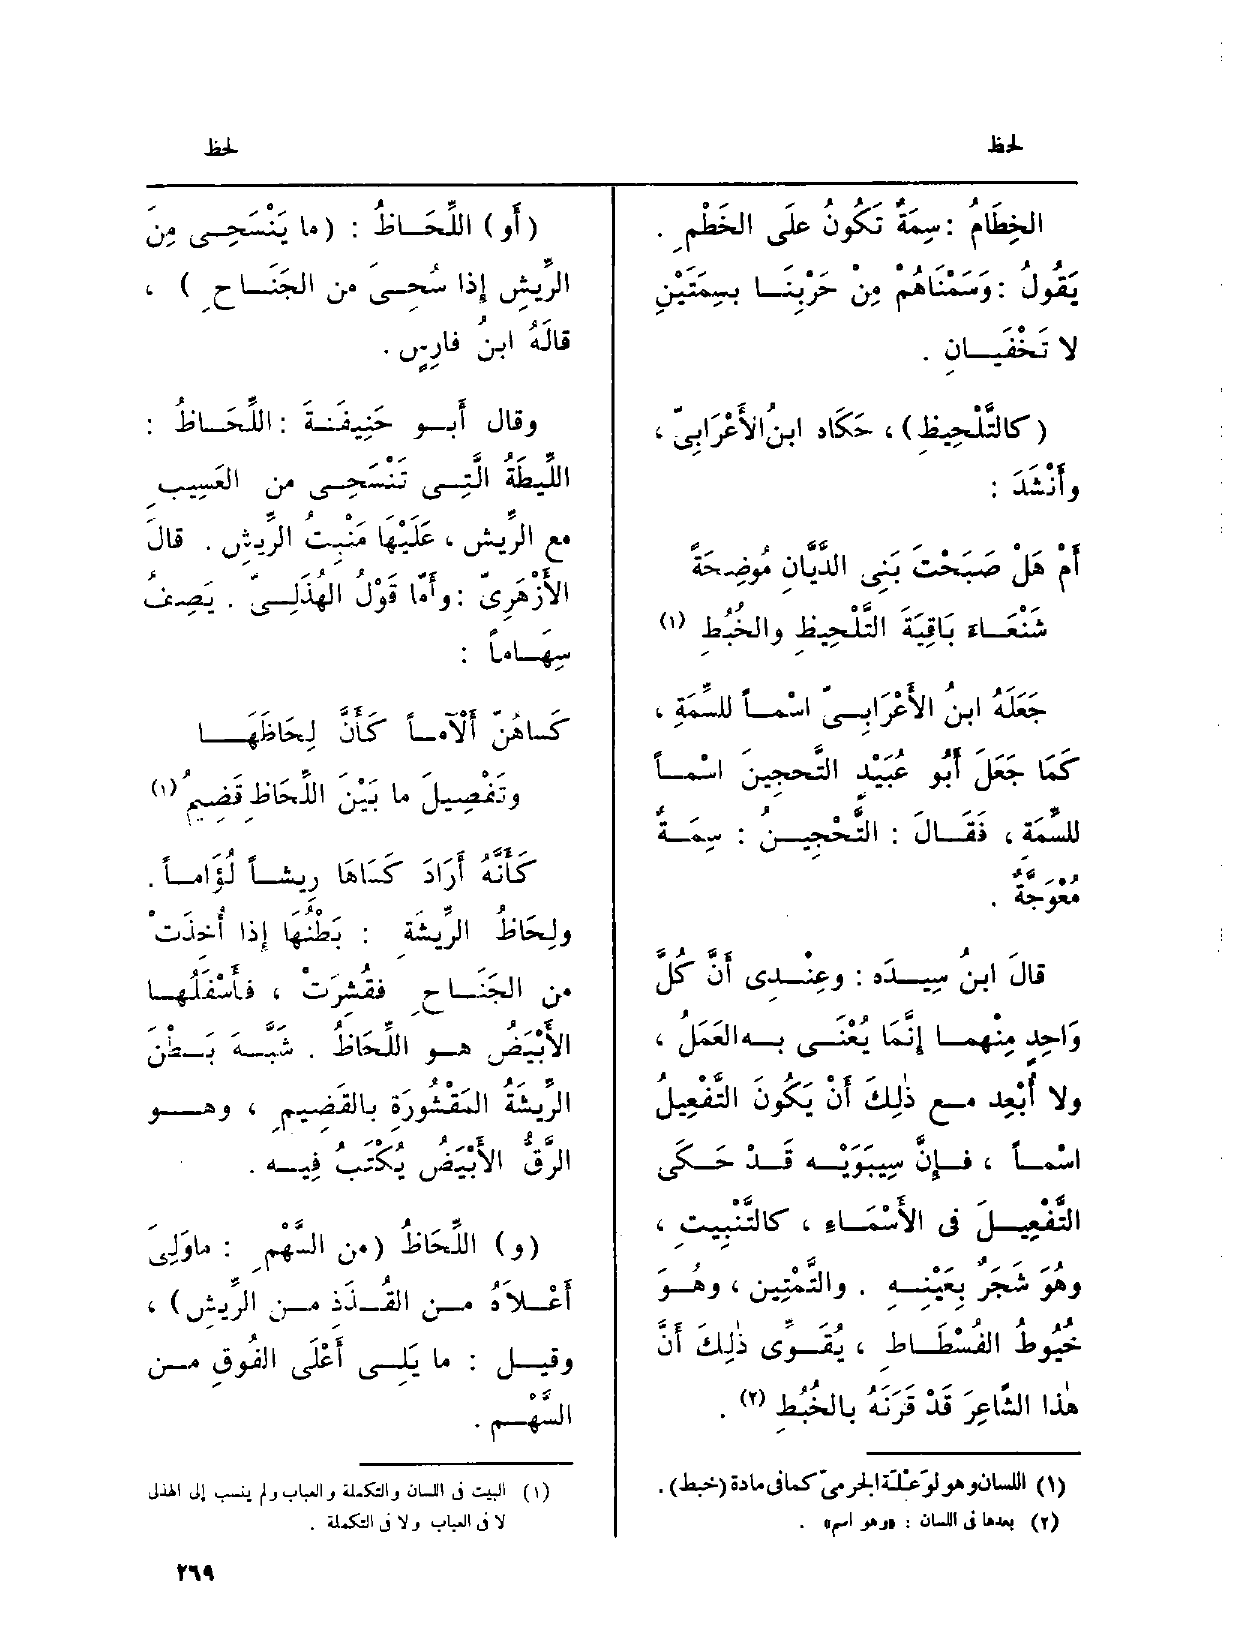 لحظ
لحظ
الخِطَامُ : سِمَةٌ تَكُونُ علَى الخَطْمِ .
يَقُولُ : وَسَمْنَاهُمْ مِنْ حَرْبِنَـا بسِمَتَيْنِ
لا تَخْفَيَـانِ .
( كالتَّلْحِيظِ ) ، حَكَاه ابنُ الأَعْرَابِىّ ،
وأَنْشَدَ :
أَمْ هَلْ صَبَحْتَ بَنِى الدَّيَّانِ مُوضِحَةً
شَنْعَـاءَ بَاقِيَةَ التَّلْحِيظِ والخُبُطِ (١)
جَعَلَهُ ابنُ الأَعْرَابِـىّ اسْمـاً للسِّمَةِ ،
كمَا جَعَلَ أَبُو عُبَيْدٍ التَّحجِينَ اسْمـاً
للسِّمَة ، فَقَـالَ : التَّحْجِيـنُ : سِمَـةٌ
مُعْوَجَّةٌ .
قالَ ابنُ سِيـدَه : وعِنْـدِى أَنَّ كُلَّ
وَاحِدٍ مِنْهمـا إِنَّمَا يُعْنَـى بـه العَمَلُ ،
ولا أُبْعِد مـع ذٰلِكَ أَنْ يَكُونَ التَّفْعِيلُ
اسْمـاً ، فـإِنَّ سِيبَوَيْـه قَـدْ حَـكَى
التَّفْعِيـلَ فى الأَسْمَـاء ، كالتَّنْبِيتِ ،
وهُوَ شَجَرٌ بِعَيْنِـهِ . والتَّمْتِين ، وهُـوَ
خُيُوطُ الفُسْطَـاطِ ، يُقَـوِّى ذٰلِكَ أَنَّ
هٰذا الشَّاعِرَ قَدْ قَرَنَهُ بالخُبُطِ (٢) .
(١) اللسان وهو لوَعْلَة الجرمىّ كما فى مادة (خبط) .
(٢) بعدها فى اللسان : «وهو اسم» .
( أَو ) اللِّحَـاظُ : ( ما يَنْسَحِـى مِنَ
الرِّيشِ إِذا سُحِـىَ من الجَنَـاحِ ) ،
قالَهُ ابنُ فارِسٍ .
وقال أَبـو حَنِيفَـةَ : اللِّحَـاظُ :
اللِّيطَةُ الَّتِـى تَنْسَحِـى من العَسِيبِ
مع الرِّيش ، عَلَيْهَا مَنْبِتُ الرِّيشِ . قالَ
الأَزْهَرِىّ : وأَمّا قَوْلُ الهُذَلِـىّ . يَصِـفُ
سِهَـاماً :
كَساهُنّ أَلْآمـاً كَأَنَّ لِحَاظَهَـا
وتَفْصِيلَ ما بَيْنَ اللِّحَاظِ قَضِيمُ (١)
كَأَنَّهُ أَرَادَ كَسَاهَا رِيشـاً لُؤَامـاً .
ولِحَاظُ الرِّيشَةِ : بَطْنُهَا إِذا أُخِذَتْ
من الجَنَـاحِ فقُشِرَتْ ، فأَسْفَلُهـا
الأَبْيَضُ هـو اللِّحَاظُ . شَبَّـهَ بَـطْنَ
الرِّيشَةِ المَقْشُورَةِ بالقَضِيمِ ، وهـو
الرَّقُّ الأَبْيَضُ يُكْتَبُ فِيـه .
( و ) اللِّحَاظُ ( من السَّهْمِ : ماوَلِىَ
أَعْـلاَهُ مـن القُـذَذِ مـن الرِّيشِ ) ،
وقيـل : ما يَلِـى أَعْلَى الفُوقِ مـن
السَّهْـمِ .
(١) البيت فى اللسان والتكملة والعباب ولم ينسب إلى الهذلى
لا فى العباب ولا فى التكملة .
٢٦٩